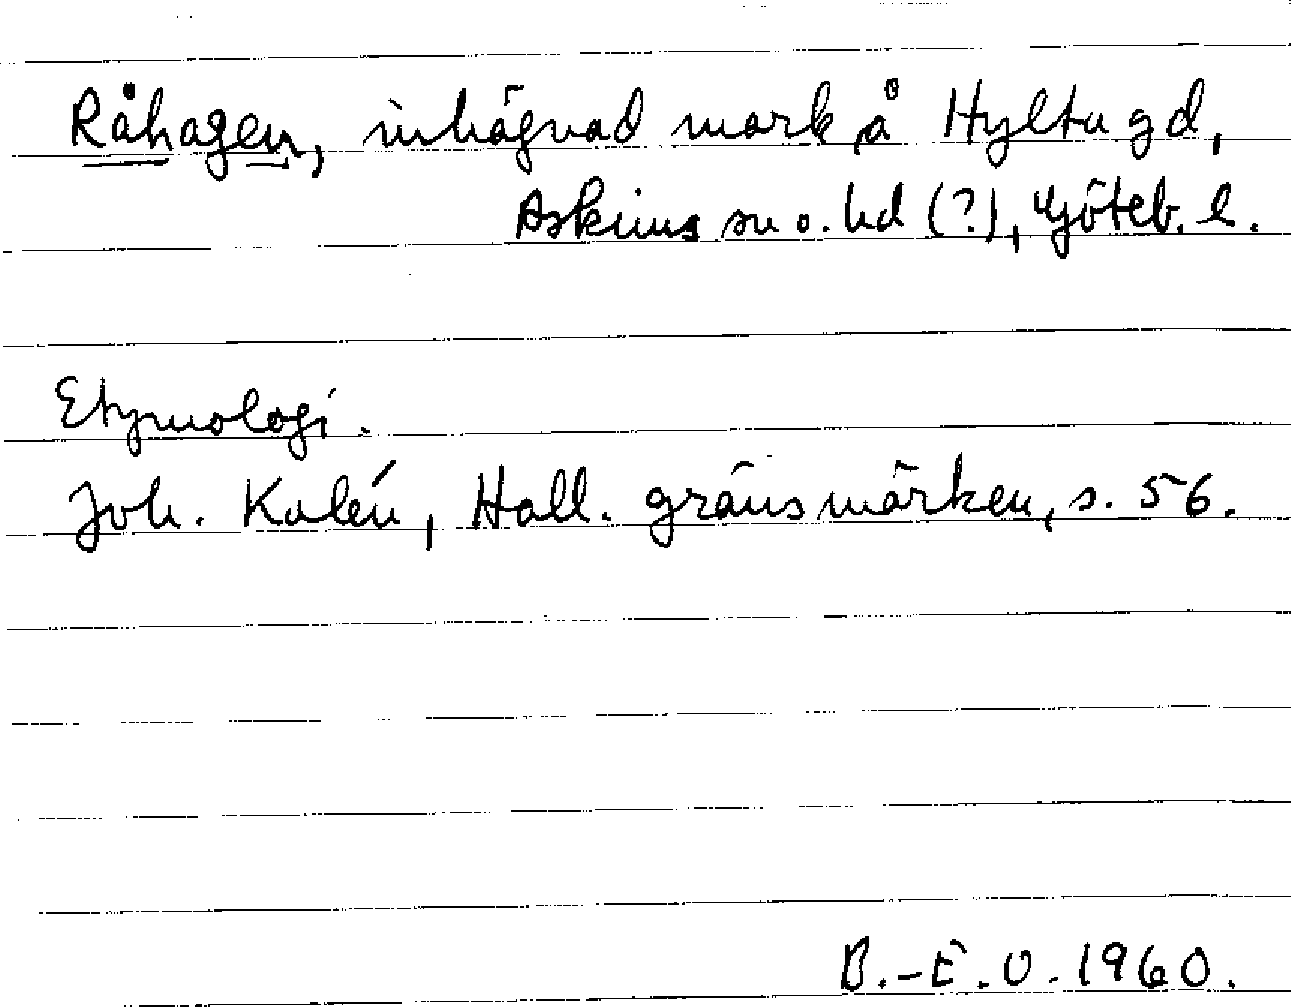 Råhagen, inhägnad mark å Hylta gd,
Askims sn o. hd (?), Göteb. l.
Etymologi.
Joh. Kalén, Hall. gränsmärken, s. 56.
B.-E. O. 1960.